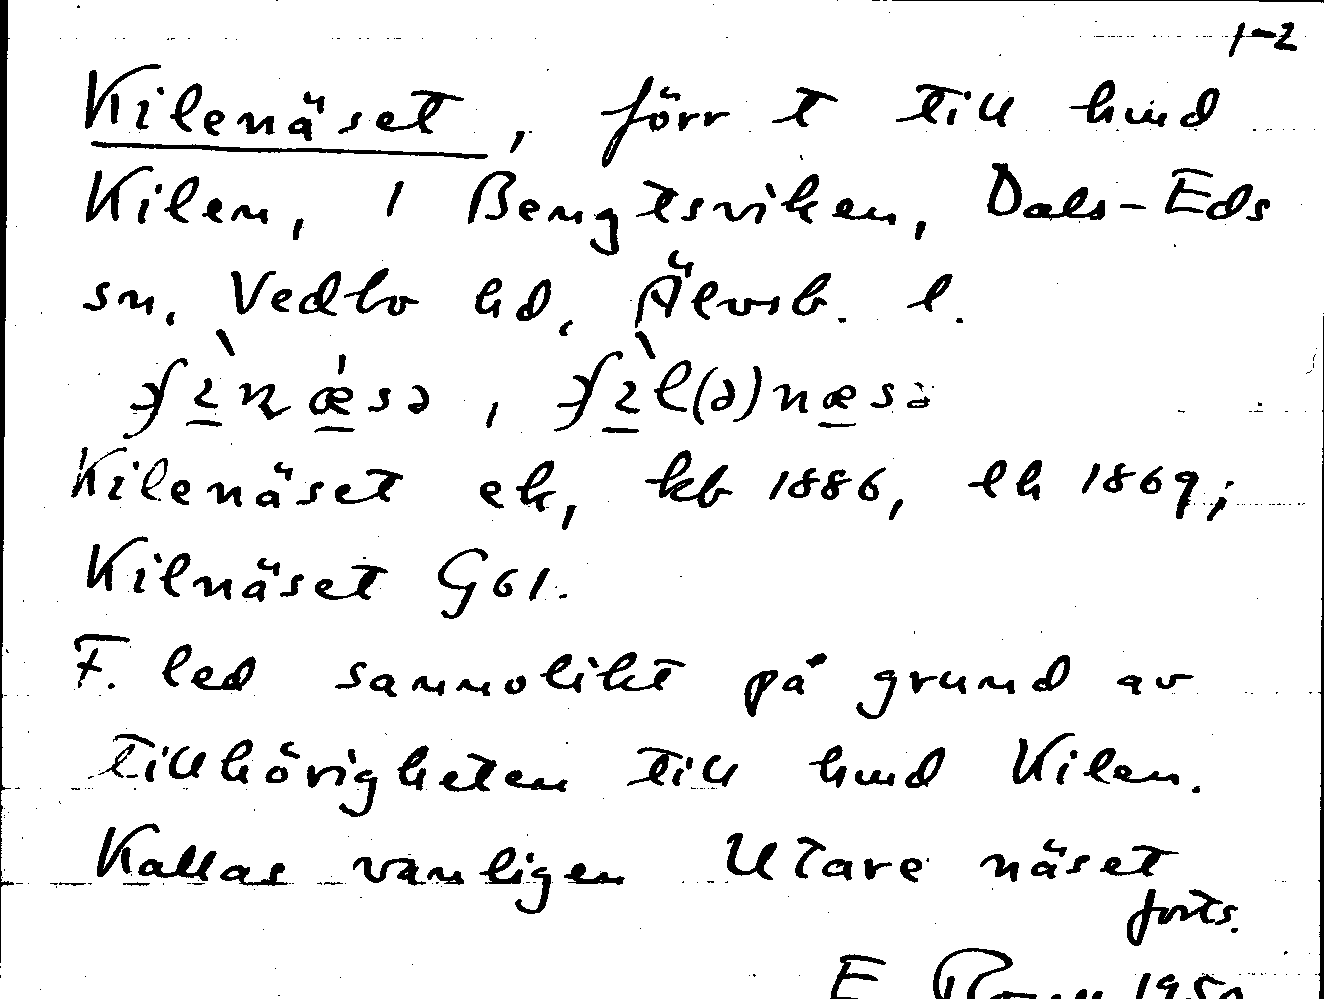 1-2
Kilenäset, förr t till hmd
Kilen, i Bengtsviken, Dals-Eds
sn, Vedbo hd, Älvsb. l.
Kilenäset ek, kb 1886, lh 1869;
Kilnäset G61.
F. led sannolikt på grund av
tillhörigheten till hmd Kilen.
Kallas vanligen Utare näset
forts.
E